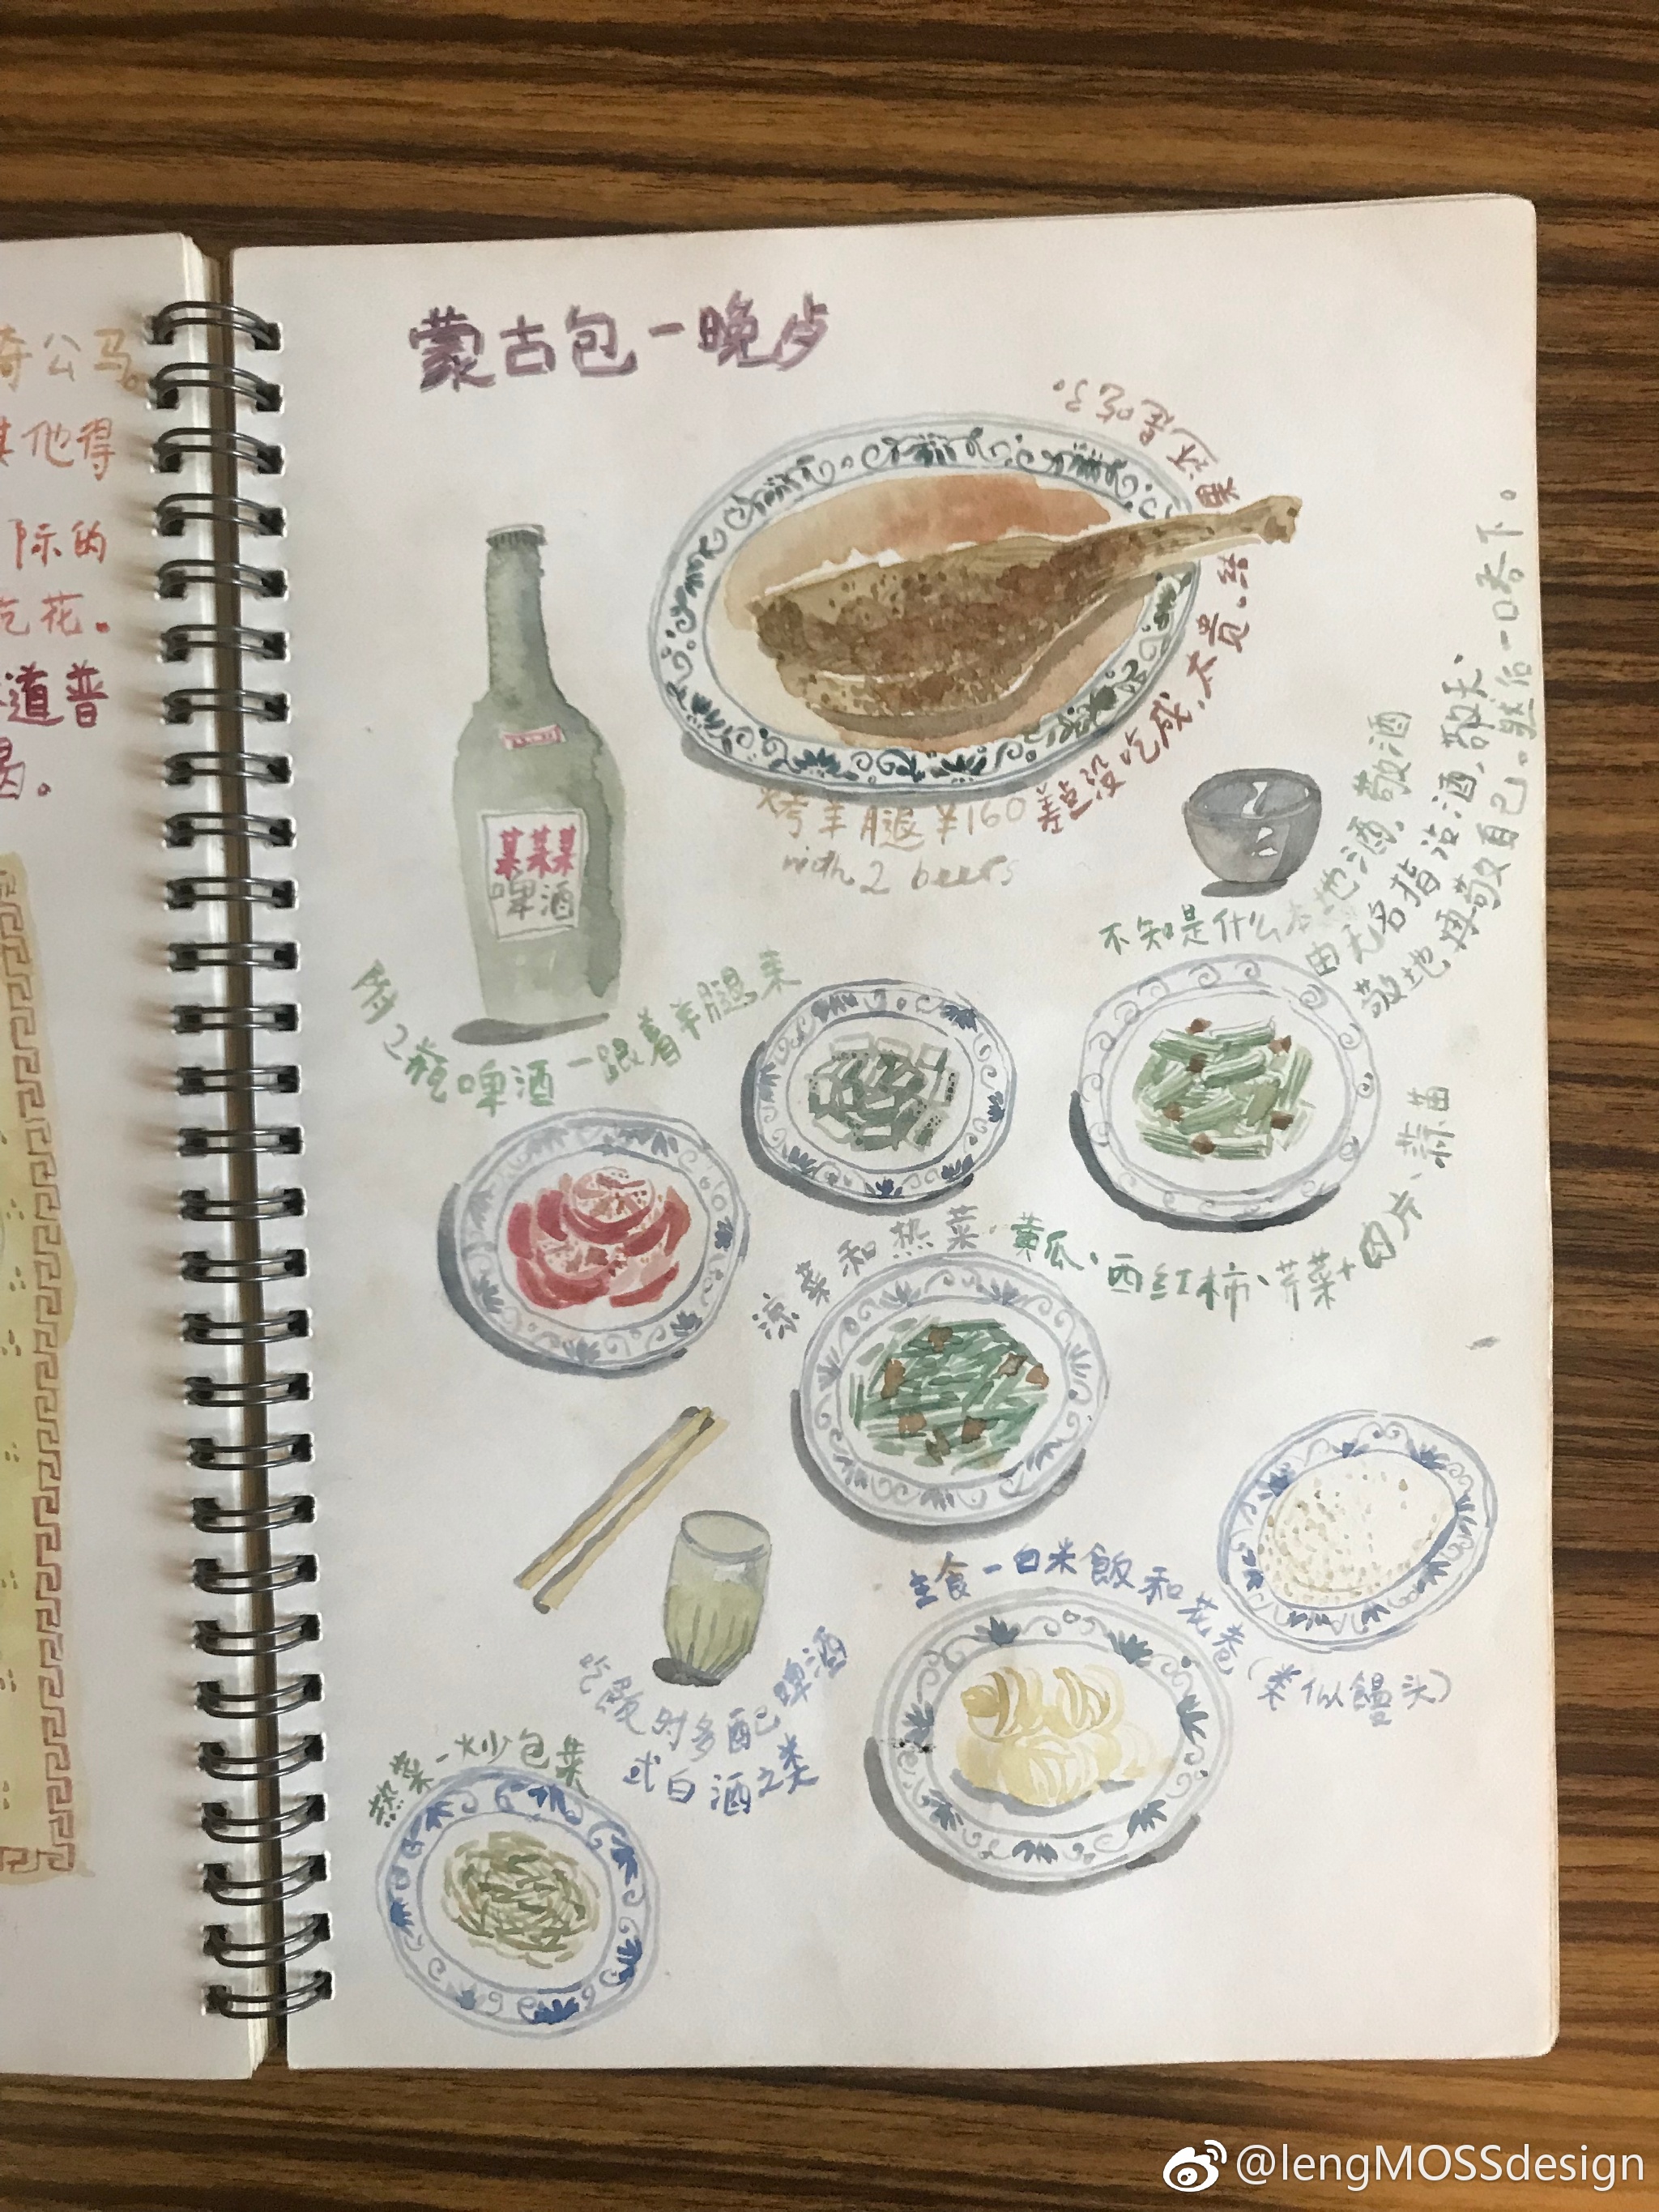 奇公马。
其他得
际的
花。
道普
喝。
蒙古包一晚
差点没吃成,太贵。结果还是吃了。
烤羊腿¥160
with 2 beers
某某某
啤酒
附2瓶啤酒一跟着羊腿来
不知是什么本地酒,敬酒
由无名指沾酒,敬天、
敬地再敬自己。然后一口吞下。
凉菜和热菜·黄瓜、西红柿、芹菜+肉片、蒜苗
主食一白米飯和花卷(类似饅头)
吃飯时多配啤酒
或白酒之类
热菜一炒包菜
@lengMOSSdesign